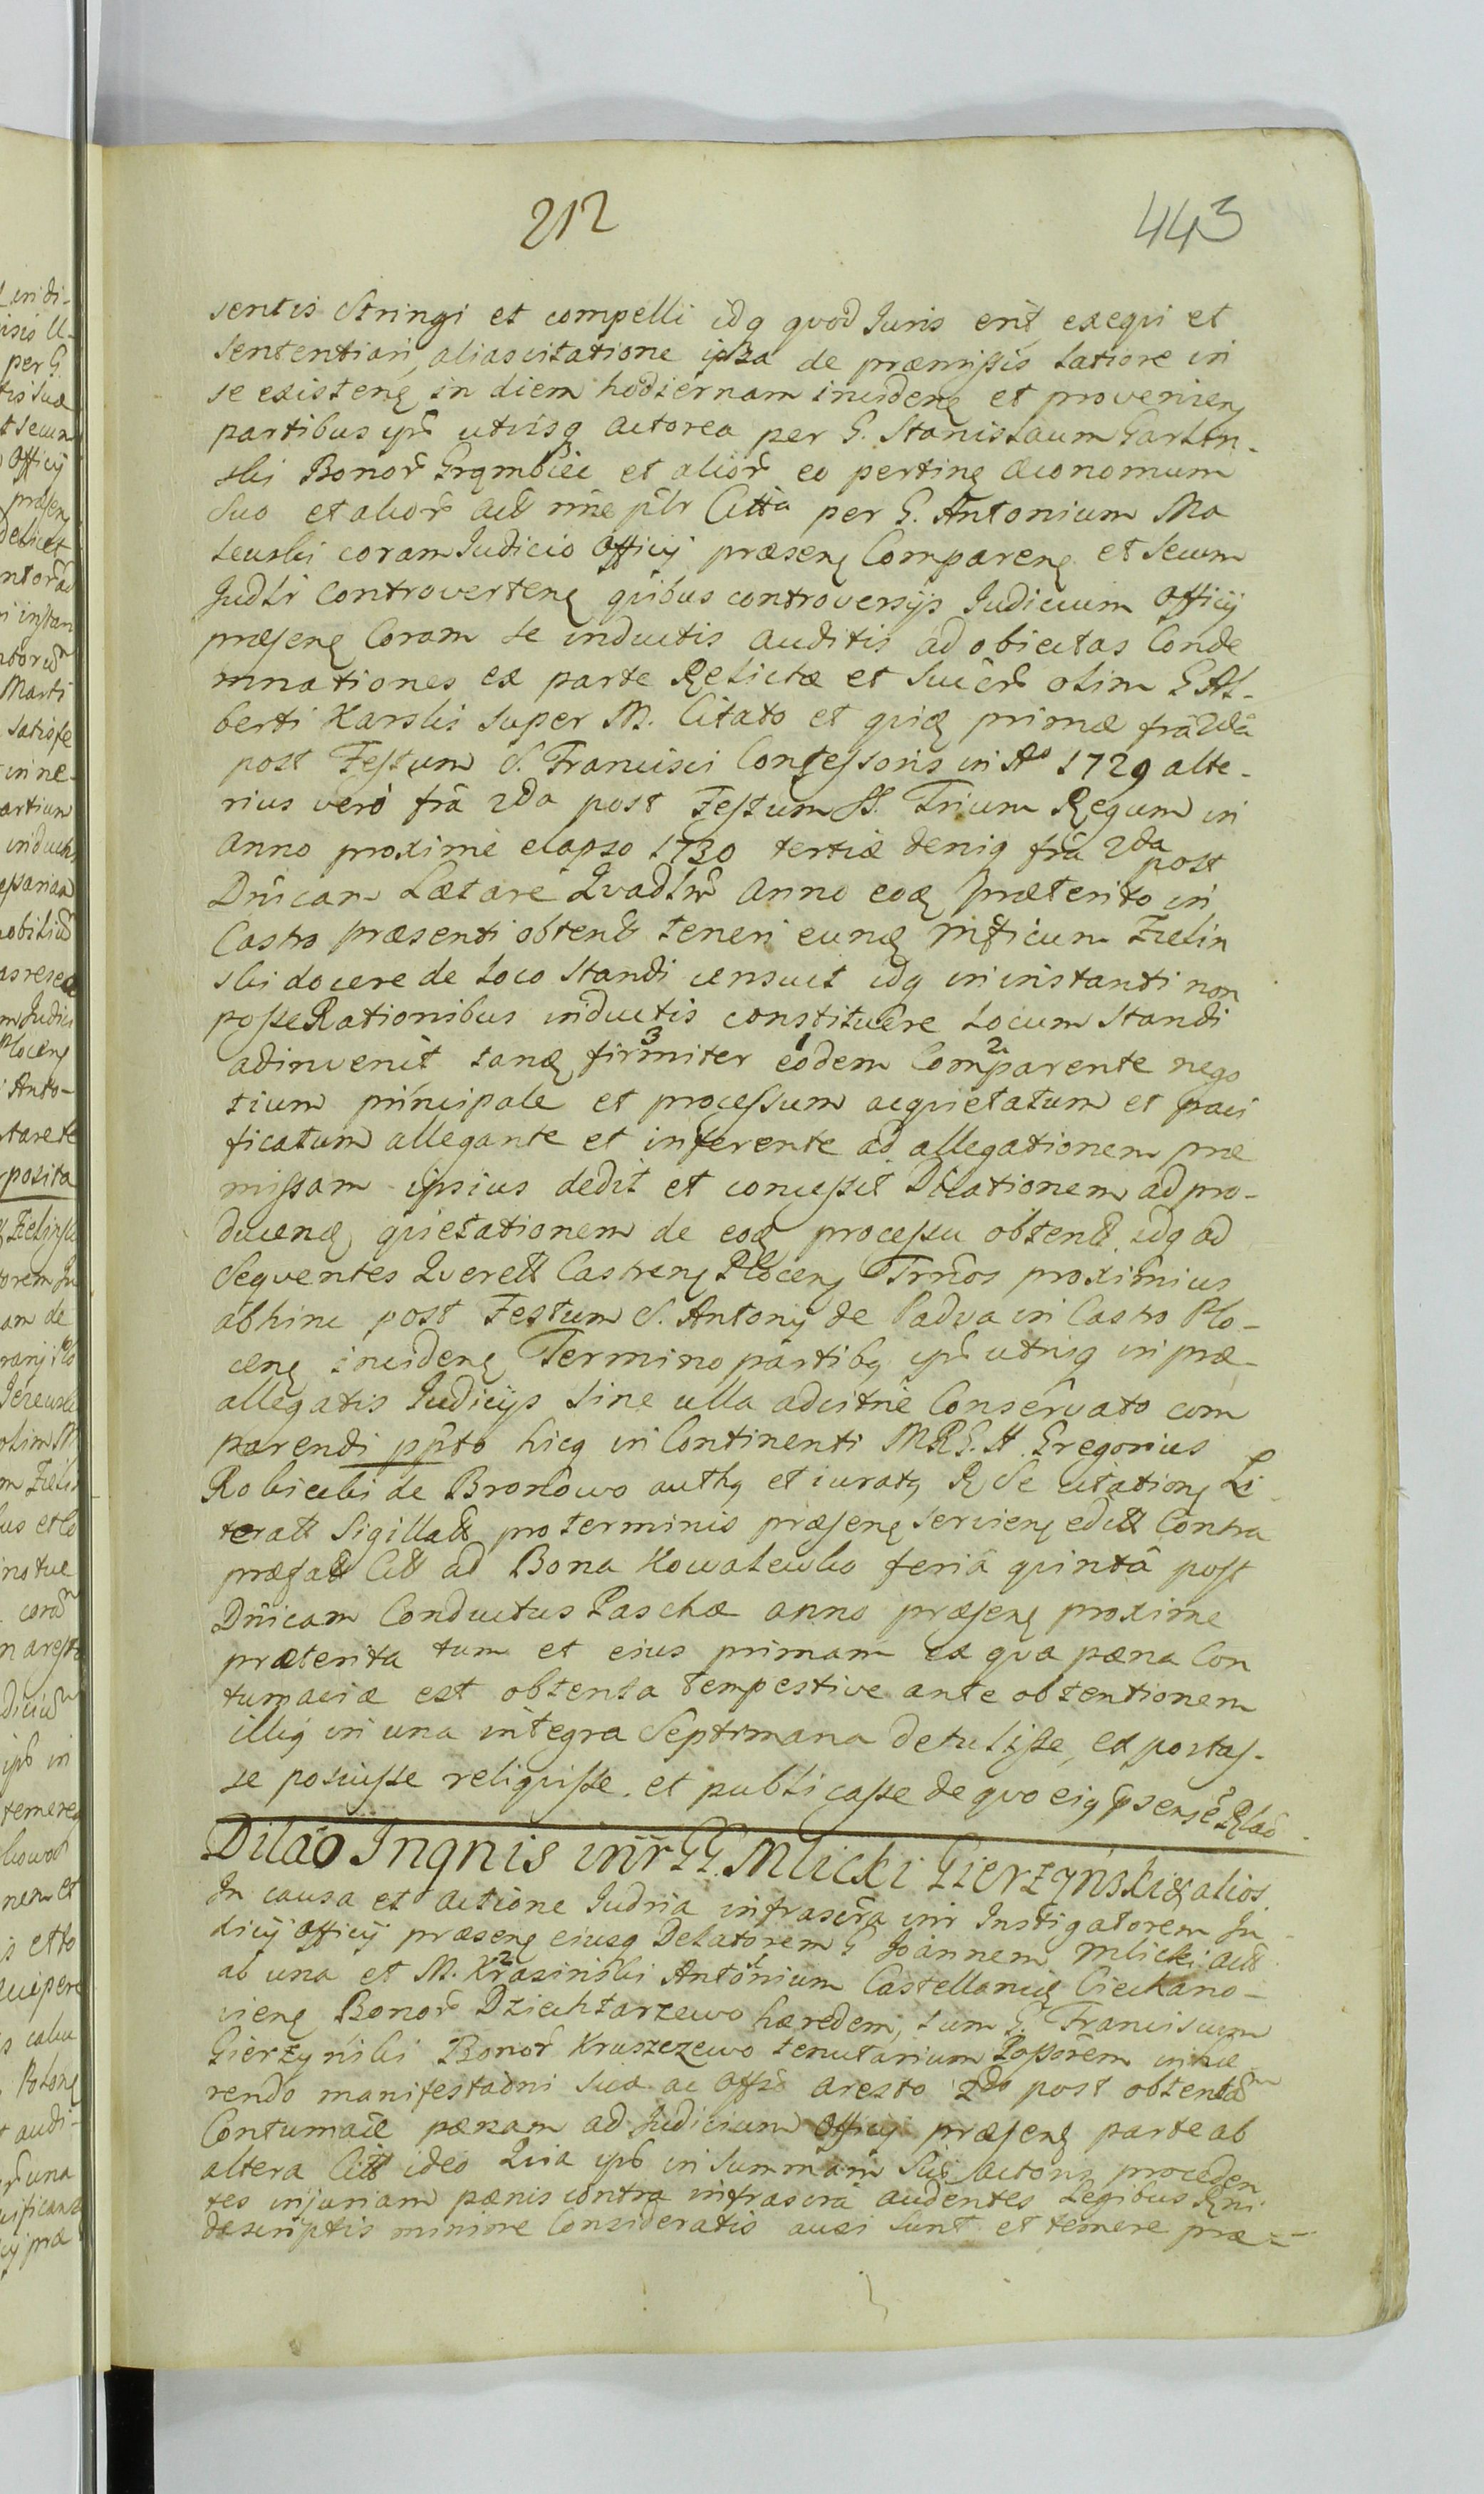 212
443
sentis Stringi et compelli idq quod Iuris erit exequi et
Sententiari, aliascitatione ipsa de præmissis latiore in
se existenę in diem hodiernam incidenę et provenienę
partibus ipſ utrisq actorea per G. Stanislaum Garlin-
ski Bonor Grąmbiec et alior eo pertinę œconomum
Suo et alior act nīne pſlr Citta per G. Antonium Ma
leuski coram Iudicio Officij præsenę Comparenę et Secum
Judlr Controvertenę quibus controversijs Iudicium Officij
præsenę Coram se inductis auditis ad obiectas Conde
mnationes ex parte Relictæ et Succr olim G Al-
berti Karski super M. Citato et quid primæ frâ 2dâ
post Festum S. Francisci Confessoris in Ao 1729 alte-
rius verò frâ 2da post Festum SS. Trium Regum in
Anno proximè elapso 1730 tertiæ deniq frâ 2da post
Dnicam Lætare Quadlmę anno eodę præterito in
Castro præsenti obtent teneri eundę Mficum Zielin
ski docere de Loco Standi censuit idq in instanti non
posse Rationibus inductis constituere Locum Standi
adinvenit tandę firmiter 3 eodem 1 Comparente 2 nego
tium principale et processum acquietatum et paci
ficatum allegante et inferente ad allegationem præ
missam ipsius dedit et concessit Dilationem ad pro-
ducendę quietationem de eodę processu obtent idq ad
Sequentes Querell Castrenę Plocenę Trnos proximius
abhinc post Festum S. Antonij de Padua in Castro Plo-
cenę incidenę Termino partibę ipſ utrisq in præ-
allegatis Iudicijs Sine ulla adcitne Conservato com
parendi ppto hicq in Continenti MRG. H. Gregorius
Robicki de Bronowo authę et iuratę R Se citationę Li
terall Sigillatt pro terminis præsenę Servienę editt Contra
præfatt Citt ad Bona Kowalewko feriâ quintâ post
Dnicam Conductus Paschæ anno præsenę proxime
præterita tum et eius primam ex qua pæna Con
tumaciæ est obtenta tempestive ante obtentionem
illię in una integra Septimana detulisse, et portas-
se posuisse reliquisse et publicasse de quo eię ipſense Rlaō
Dilaō Ingnis inīr GG. Mlicki Gierzynski & alios
In causa et actione Iudria infrascra inr Instigatorem Ju
dicij Officij præsenę eiusq Delatorem G Joannem Mlicki act
ab una et M. Krasinski 2 Antonium 1 Castellanidę Ciechano-
vienę Bonor Dziechtarzewo hæredem, tum G. Franciscum
Gierzynski Bonor Kruszczewo tenutarium Possorem inhæ-
rendo manifestaōni Suæ ac Offso aresto 2do post obtentam
Contumaciæ pænam ad Judicium Officij præsenę parte ab
altera Citt ideo Quia ipſ in Summam Sui actorię proceden
tes injuriam pænis contra infrascra audentes Legibus Rni
descriptis minime Consideratis ausi Sunt et temere præ=